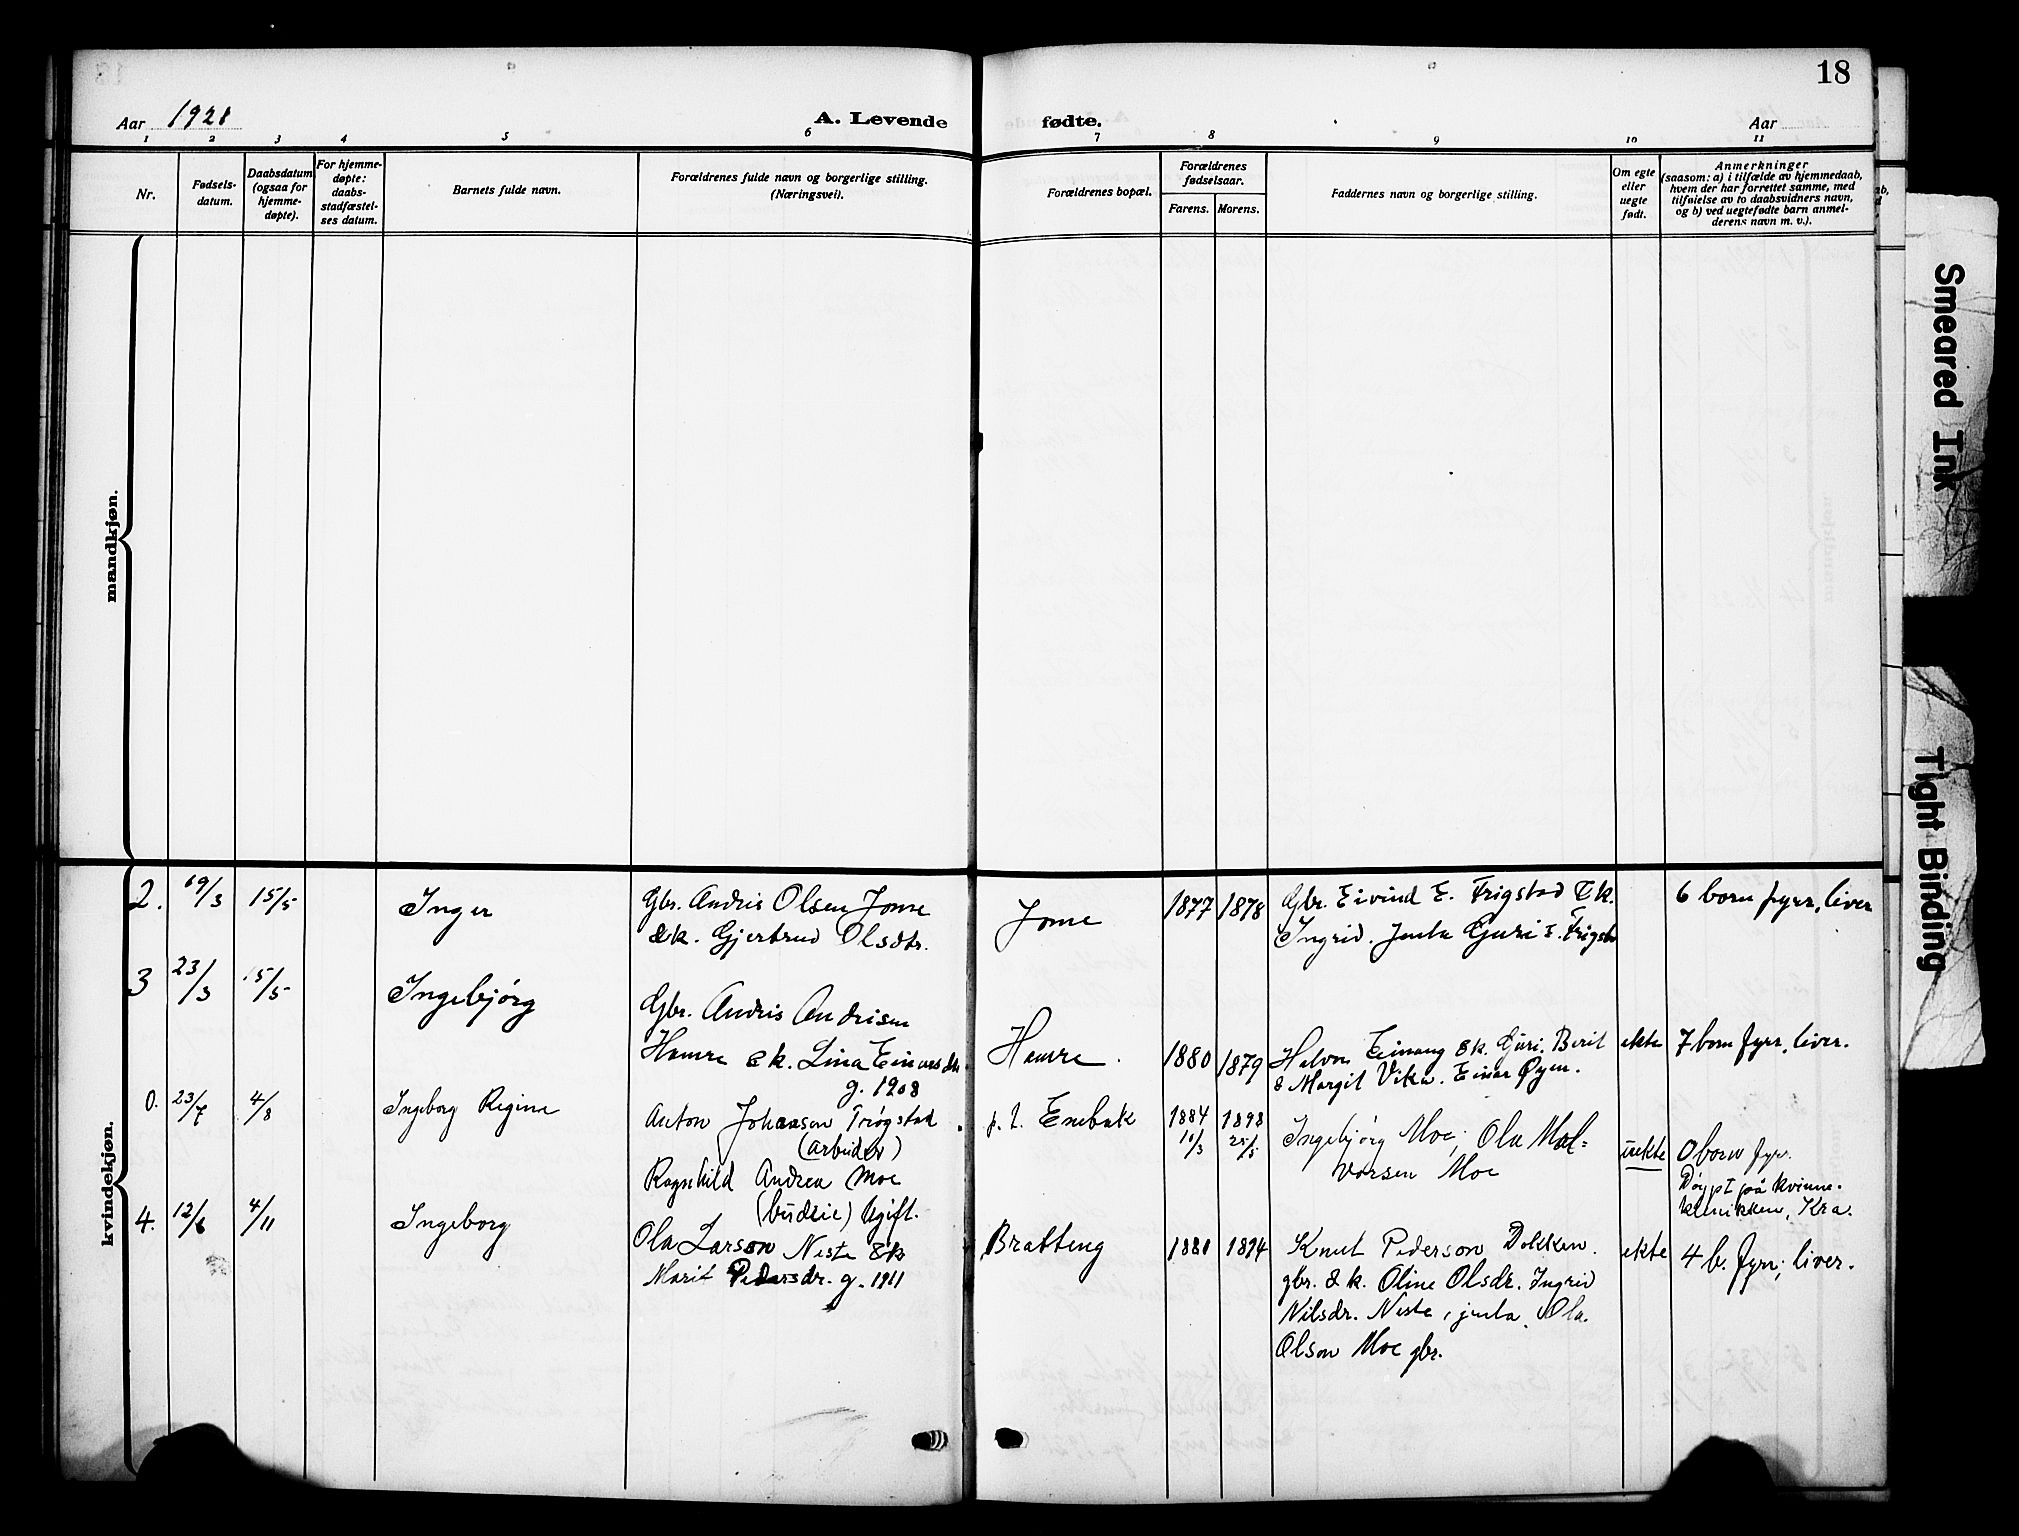 18
Aar 1921
A. Levende
fødte.
Aar
1 2 3 4 5 6 7 8 9 10 11
Nr.
Fødsels-
datum.
Daabsdatum
(ogsaa for
hjemme-
døpte).
For hjemme-
døpte:
daabs-
stadfæstel-
ses datum.
Barnets fulde navn.
Forældrenes fulde navn og borgerlige stilling.
(Næringsvei).
Forældrenes bopæl.
Forældrenes
fødselsaar.
Farens. Morens.
Faddernes navn og borgerlige stilling.
Om egte
eller
uegte
født.
Anmerkninger
(saasom: a) i tilfælde av hjemmedaab,
hvem der har forrettet samme, med
tilføielse av to daabsvidners navn,
og b) ved uegtefødte barn anmel-
derens navn m. v.).
mandkjøn.
kvindekjøn.
2. 19/3 15/5 Inger
Gbr. Andris Olsen Jome
& k. Gjertrud Olsdtr.
Jome 1877 1878
Gbr. Eivind E. Frigstad & k.
Ingrid. Jenta Guri E. Frigstad
6 born fyrr, liver
3 23/3 15/5 Ingebjørg
Gbr. Andris Andrisen
Hamre & k. Lina Einarsdtr.
g. 1908
Hamre. 1880 1879
Halvor Einang & k. Guri. Berit
& Margit Vika. Einar Øyen.
ekte 7 born fyrr, liver.
0. 23/7 4/8 Ingeborg Regine
Anton Johansen Trøgstad
(arbeider)
Ragnhild Andrea Moe
(budeie) Ugift.
p. t. Enebak 1884 11/3 1898 25/5
Ingebjørg Moe, Ola Hal-
vorsen Moe
uekte 0 born fyr.
Døypt på kvinne-
klinikken, Kra.
4. 12/6 4/11 Ingeborg
Ola Larson Neste & k
Marit Pedersdr. g. 1911
Bratteng 1881 1894
Knut Pederson Dokken
gbr. & k. Oline Olsdr. Ingrid
Nilsdr. Neste, jenta, Ola
Olson Moe gbr.
ekte 4 b. fyrr, liver.
Smeared Ink
Tight Binding